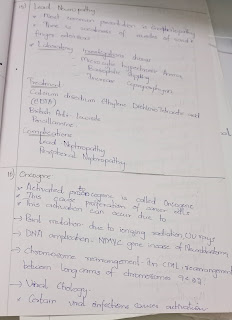 Lead Neuropathy
• Most common presentation is
• There is weakness of muscles of
finger
• Laboratory Investigations shows
- Microcytic hypochromic Anemia
- Basophilic Stippling
- Increase Coproporphyrin
Treatment
Calcium disodium Ethylene
(EDTA)
British Anti Lewisite
Penicillamine
Complications
Lead Nephropathy
Peripheral Nephropathy
Oncogene
• Activated proto oncogene is called Oncogene
• This cause proliferation of cancer cells
• This activation can occur due to
→ Point mutation due to ionizing radiation, UV rays
→ DNA amplification, NMYC gene incase of Neuroblastoma
→ Chromosome rearrangement - In CML, rearrangement
between long arms of chromosomes 9 & 22
→ Viral Etiology:
• Certain viral infections cause activation